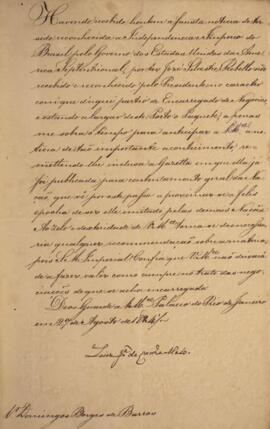 Havendo recebido hontem a fausta noticia de ter
sido reconhecida a Independencia e Imperio do
Brasil pelo Governo dos Estados Unidos da Ame
rica Septentrional, por ter José Silvestre Rebello sido
recebido e reconhecido pelo Presidente no caracter
com que d'aqui partio de Encarregado de Negocios,
e estando a largar deste Porto o Paquete; apenas
me sobra o tempo para anticipar a V. M.ce a no
ticia de tão importante acontecimento, re
mettendo-lhe inclusa a Gazetta em que ella já
foi publicada para contentamento geral da Na
ção, que vê por este passo approximar-se a feliz
epocha de ser elle imitado pelas demais Nações.
O zelo e actividade de V. M.ce torna-se desnecessa
ria qualquer recommendação sobre a materia,
pois S. M. Imperial confia que V. M.ce não deixará
de a fazer valer como cumpre no trato das nego
ciações de que se acha encarregado.
Deos Guarde a V. M.ce Palacio do Rio de Janeiro
em 27 de Agosto de 1824.
Luiz José de Carv.o e Mello
S.r Domingos Borges de Barros